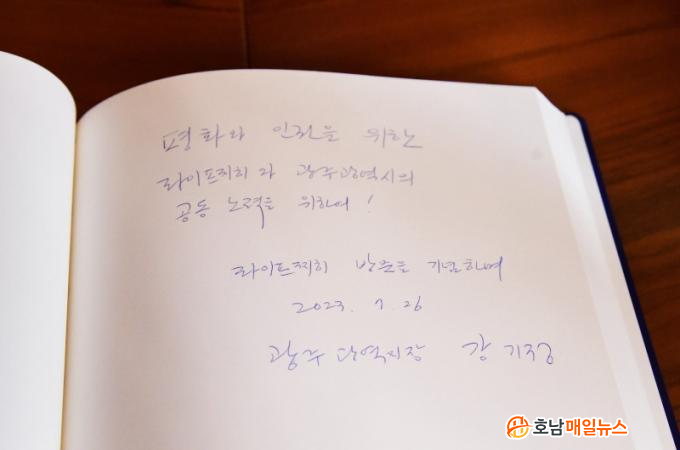 평화와 인권을 위한
라이프찌히와 광주광역시의
공동 노력을 위하여!
라이프찌히 방문을 기념하며
2023. 7. 26
광주광역시장 강기정
호남매일뉴스